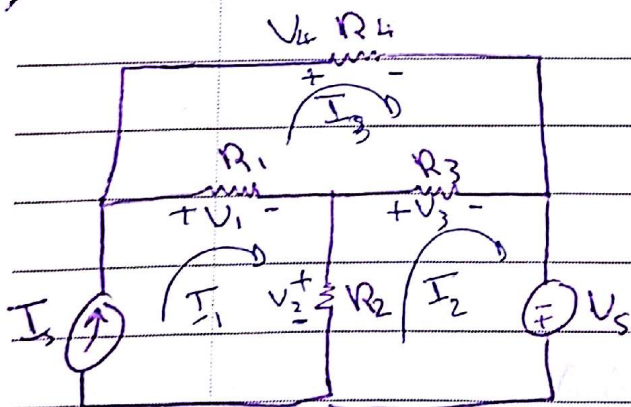 V4 R4
+ -
I3
R1 R3
+ V1 - + V3 -
Is I1 V2 + - R2 I2 ∓ Vs